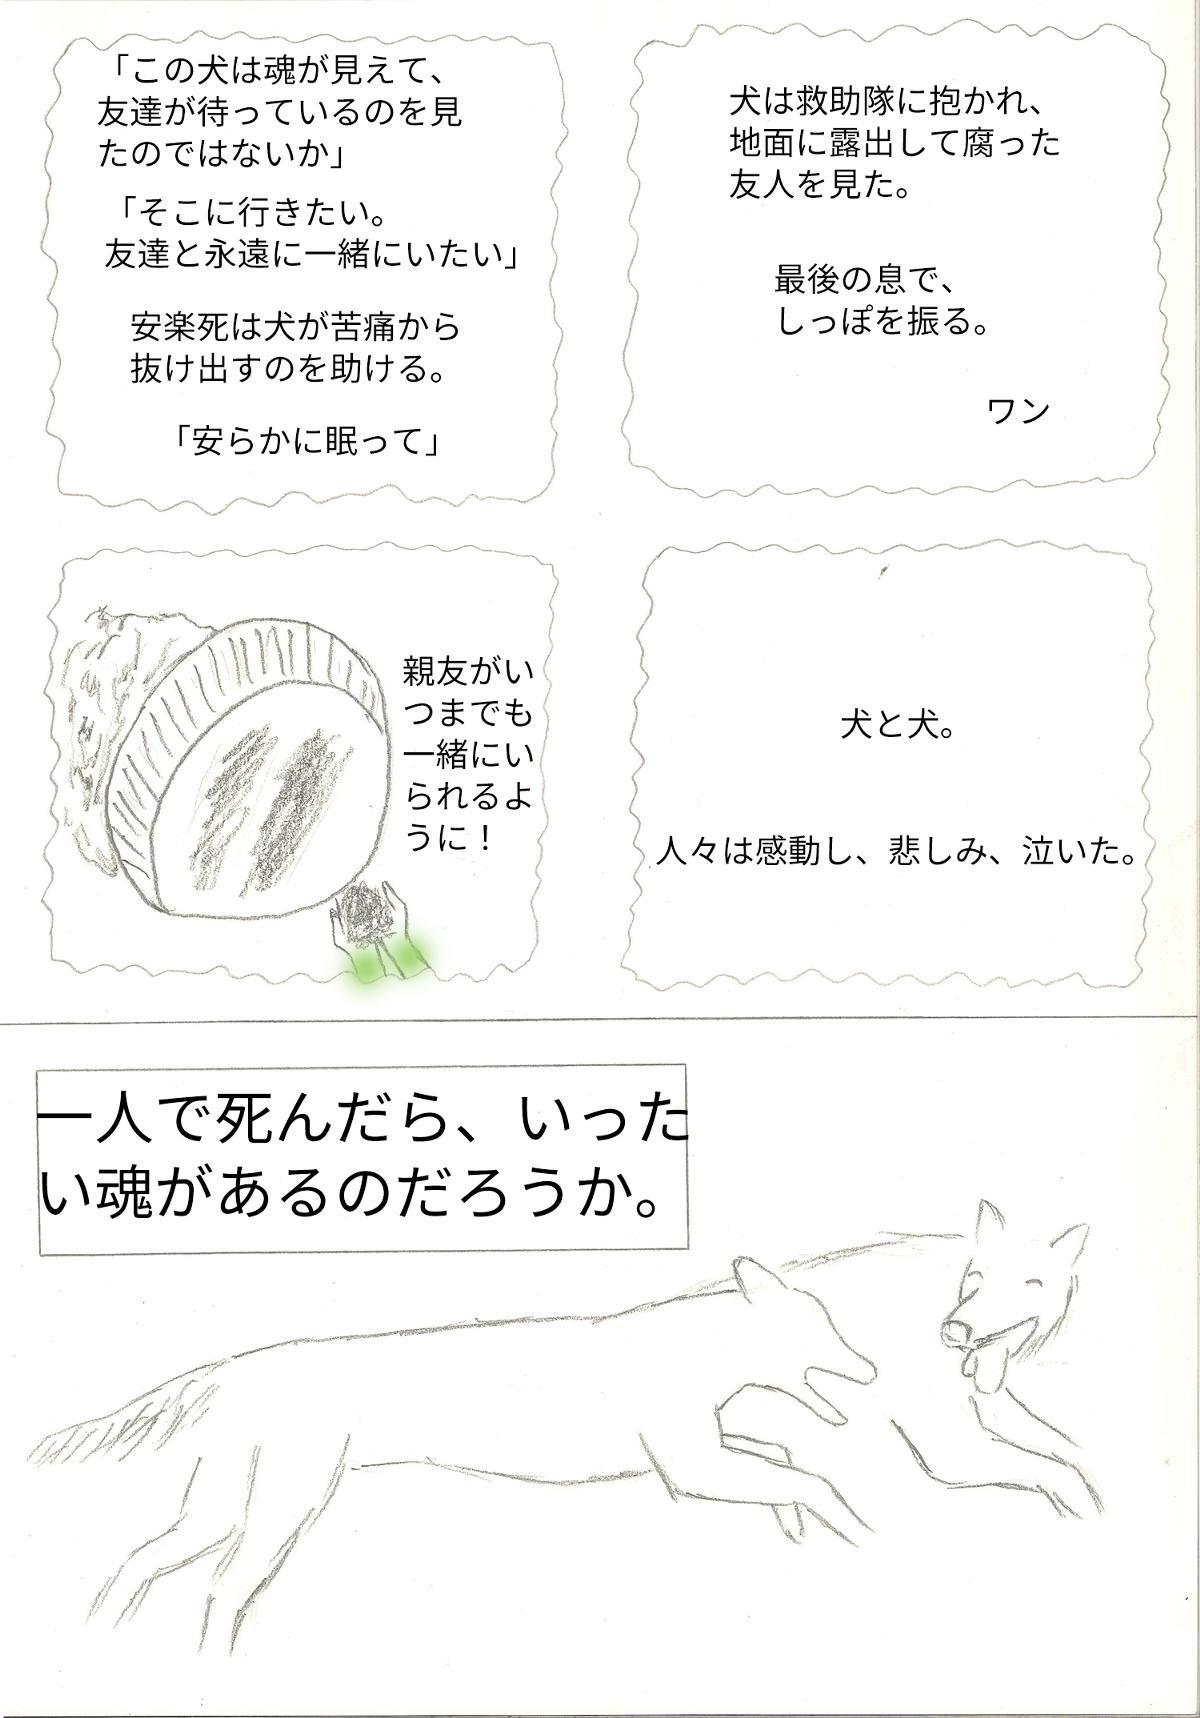 「この犬は魂が見えて、
友達が待っているのを見
たのではないか」
「そこに行きたい。
友達と永遠に一緒にいたい」
安楽死は犬が苦痛から
抜け出すのを助ける。
「安らかに眠って」
犬は救助隊に抱かれ、
地面に露出して腐った
友人を見た。
最後の息で、
しっぽを振る。
ワン
親友がい
つまでも
一緒にい
られるよ
うに！
犬と犬。
人々は感動し、悲しみ、泣いた。
一人で死んだら、いった
い魂があるのだろうか。